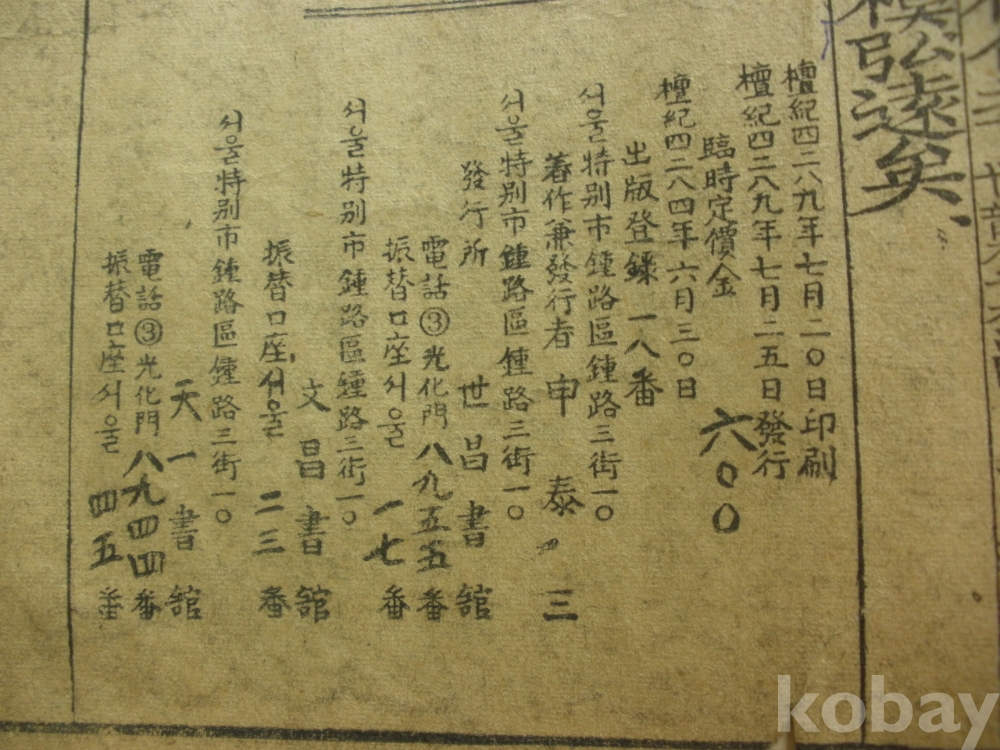 規模弘遠矣
檀紀四二八九年七月二〇日印刷
檀紀四二八九年七月二五日發行
臨時定價金 六〇〇
檀紀四二八四年六月三〇日
出版登錄一八番
서울特別市鍾路區鍾路三街一〇
著作兼發行者 申泰三
서울特別市鍾路區鍾路三街一〇
發行所 世昌書舘
電話③光化門八九五五番
振替口座서울 一七番
서울特別市鍾路區鍾路三街一〇
文昌書舘
振替口座서울 二三番
서울特別市鍾路區鍾路三街一〇
天一書舘
電話③光化門八九四四番
振替口座서울 四五番
kobay